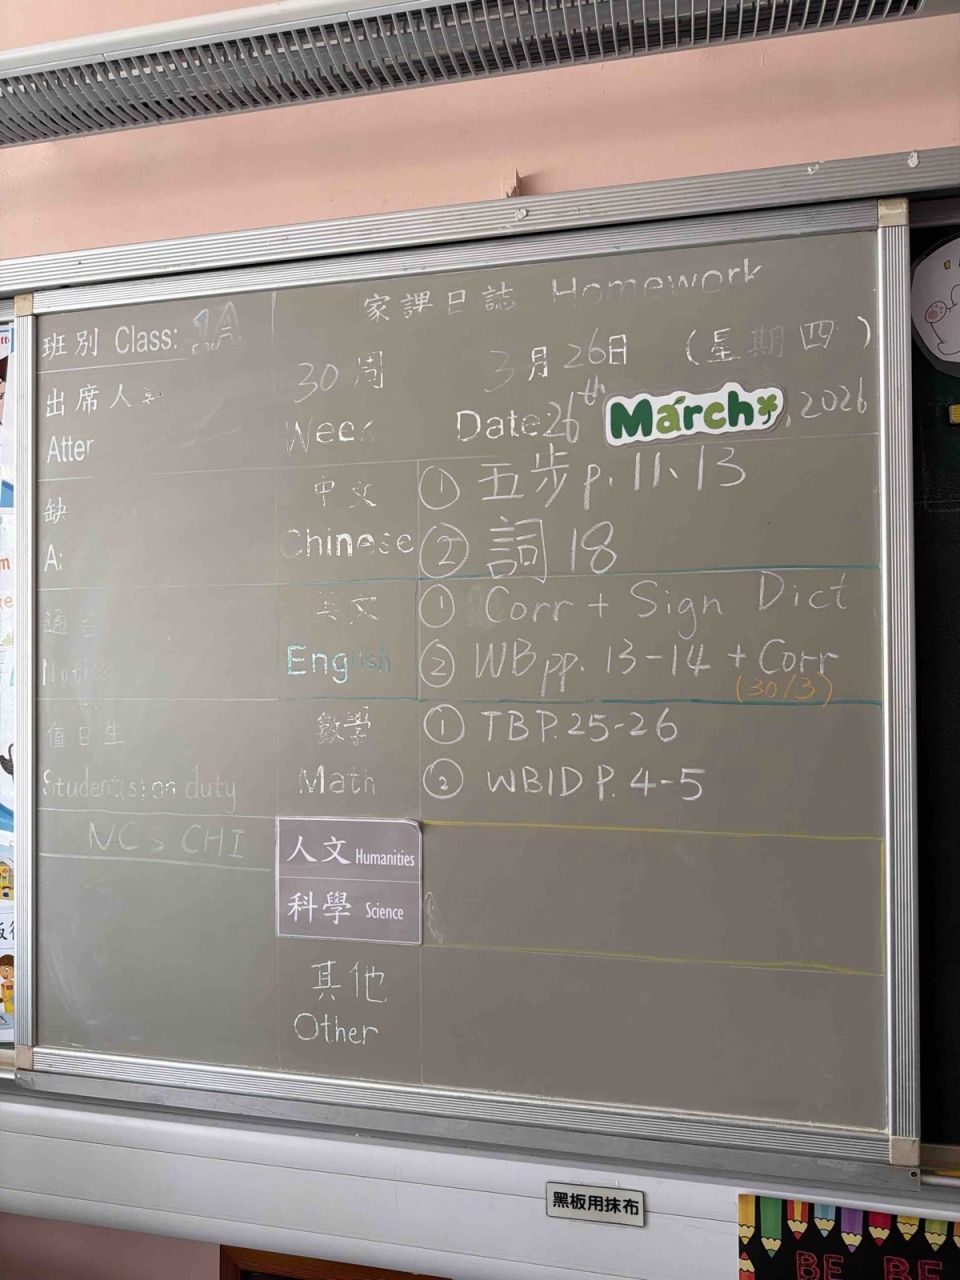 家課日誌 Homework
班別 Class: 1A
30周 3月26日 (星期四)
出席人
Week Date 26th March, 2026
Atter
中文 ① 五步 p. 11、13
缺
Chinese ② 詞 18
A:
英文 ① Corr + Sign Dict
English ② WB pp. 13-14 + Corr
(30/3)
數學 ① TB P. 25-26
值日生
Math ② WB1D P. 4-5
Student(s) on duty
NCS CHI
人文 Humanities
科學 Science
其他
Other
黑板用抹布
BE BE